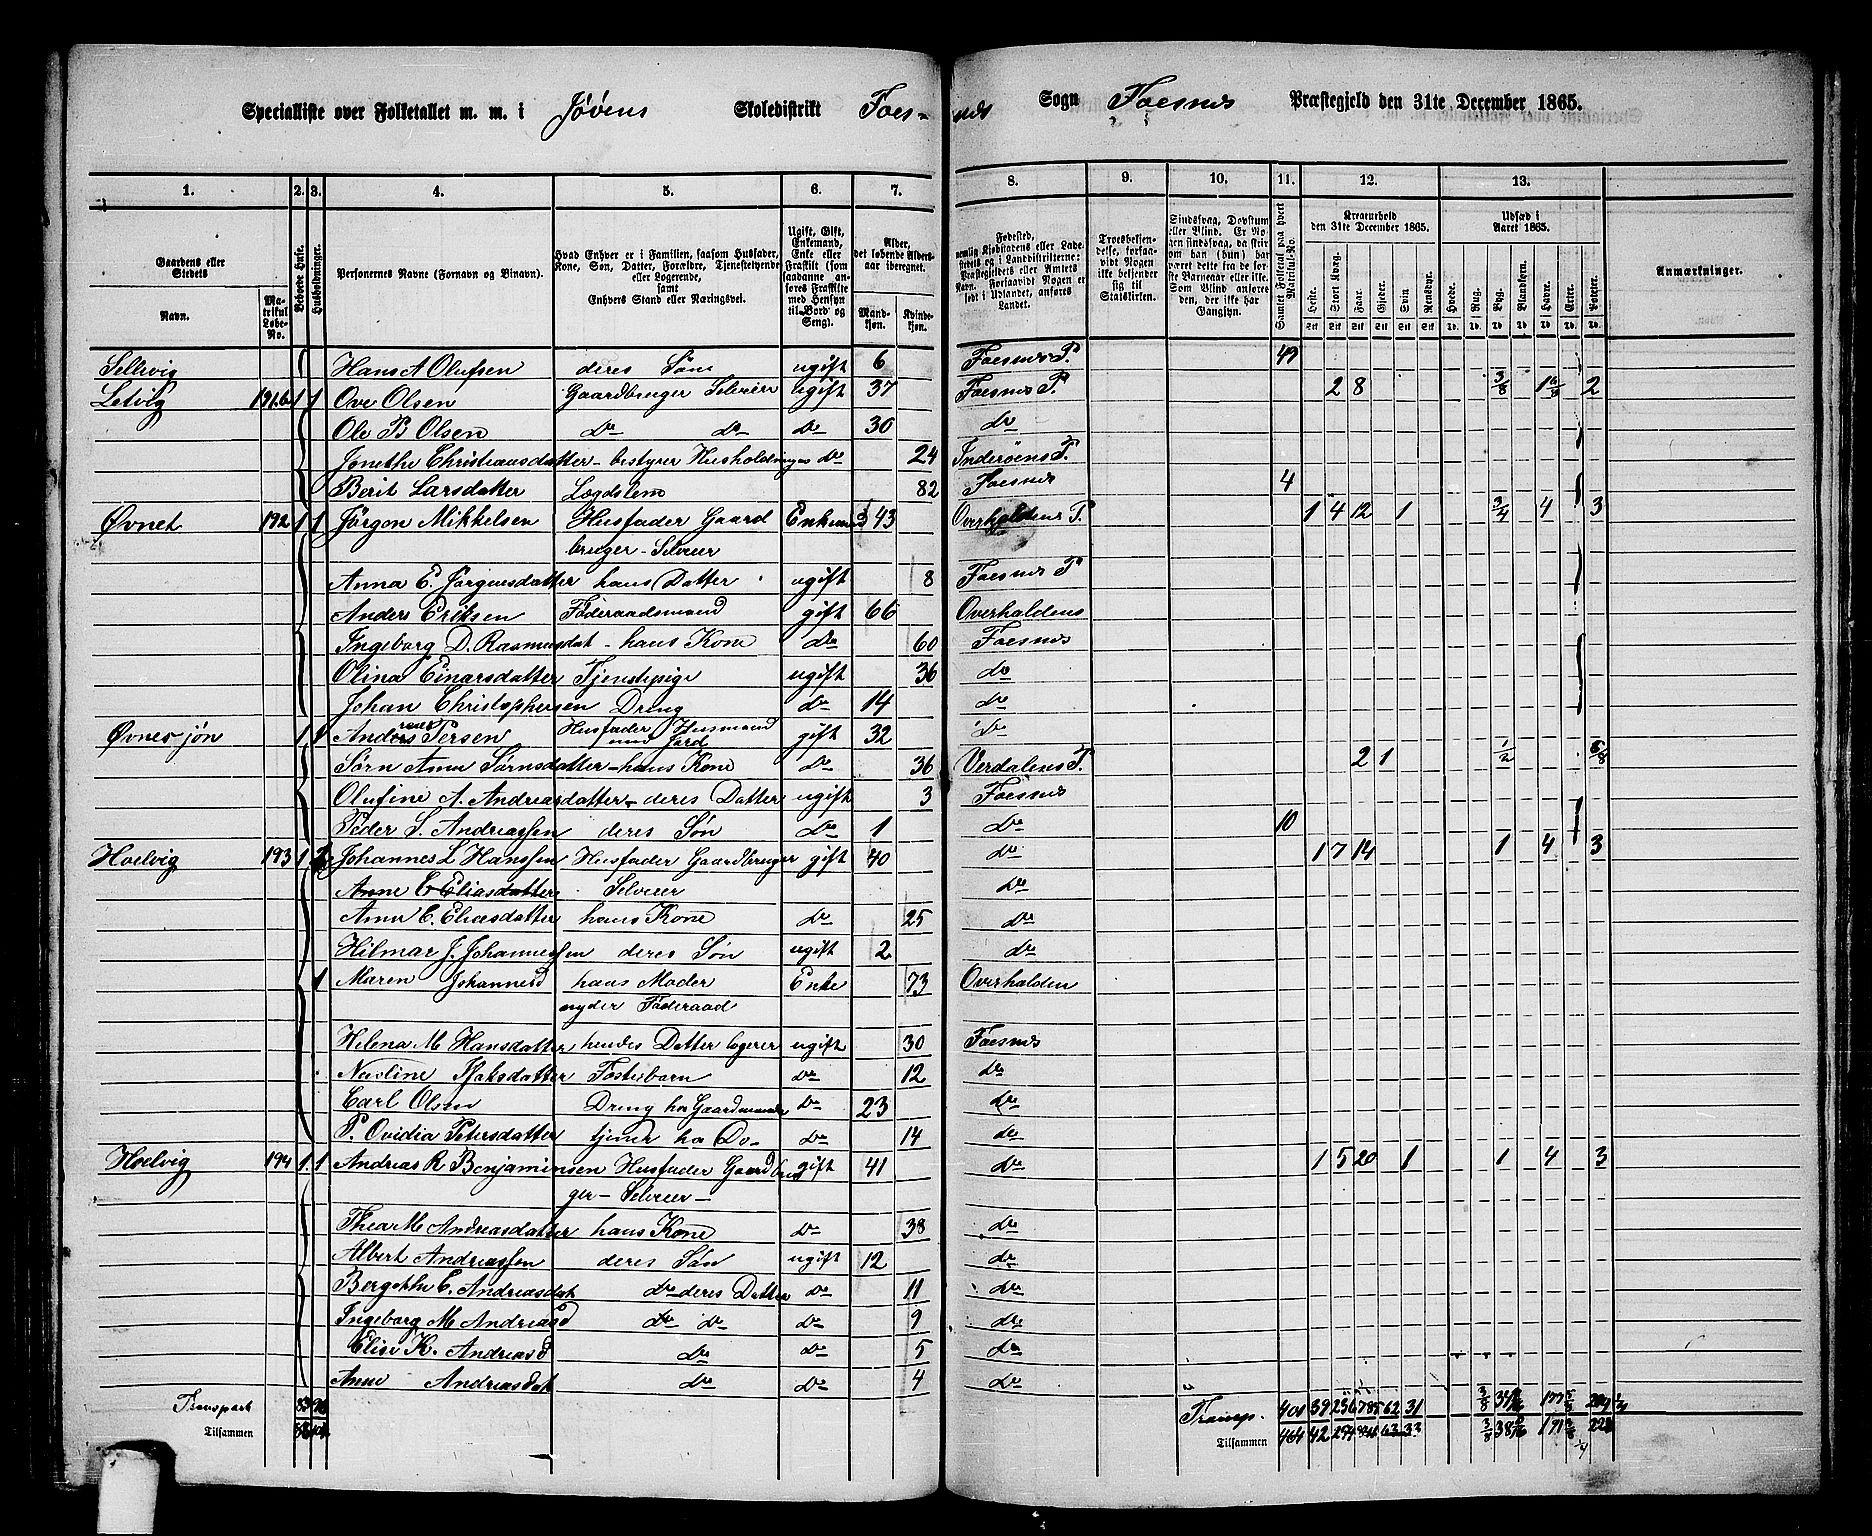 Specialliste over Folketallet m. m. i Jøvens Skoledistrikt Foes-nes Sogn Foesnes Præstegjeld den 31te December 1865.
1. 2. 3. 4. 5. 6. 7. 8. 9. 10. 11. 12. 13.
Gaardens eller Stedets Navn. Matrikul Løbe-No. Beboede Huse. Husholdninger. Personernes Navne (Fornavn og Tilnavn). Hvad Enhver er i Familien, saasom Husfader, Kone, Søn, Datter, Forældre, Tjenestetyende eller Logerende, samt Enhvers Stand eller Næringsvei. Ugift, Gift, Enkemand, Enke eller Fraskilt (som saadanne anføres Fraskilte med Hensyn til Bord og Seng). Alder, det løbende Aldersaar iberegnet. Mandkjøn. Kvindekjøn.
Kreaturhold den 31te December 1865. Udsæd i Aaret 1865. Anmærkninger.
Heste. Stort Kvæg. Faar. Gjeder. Svin. Rensdyr. Hvede. Rug. Byg. Blandkorn. Havre. Erter. Poteter.
Sellevig Hans A Olufsen deres Søn ugift 6 Foesnes P. 49
Letvig 191.b 1 1 Ove Olsen Gaardbruger Selveier ugift 37 Foesnes P. 2 8 3/8 1 6/8 2
Ole B Olsen do do do 30 do
Jonethe Christiansdatter - bestyrer Husholdningen do 24 Inderøens P.
Berit Larsdatter Lægdslem 82 Foesnes 4
Øvnet 192 1 1 Jørgen Mikkelsen Husfader Gaard Enkemand 43 Overhaldens P. 1 4 12 1 3/4 4 3
bruger - Selveier
Anna E. Jørgensdatter hans Datter ugift 8 Foesnes P
Anders Eriksen Føderaadsmand gift 66 Overhaldens
Ingeborg D. Rasmusdat - hans Kone do 60 Foesnes
Olina Einarsdatter Tjenestepige ugift 36 do
Johan Christophersen Dreng do 14 do
Øvnesjøn 1 1 Persen Husfader Husmand med Jord gift 32 do
Sørn Anna Sørnsdatter - hans Kone do 36 Verdalens P. 2 1 1/2 6/8
Olufine A. Andreasdatter - deres Datter ugift 3 Foesnes
Peder S. Andreassen deres Søn do 1 do 10
Hoelvig 193 1 Johannes L Hanssen Husfader Gaardbruger gift 40 do 1 7 14 1 4 3
Anne E Eliasdatter Selveier do
Anna E. Eliasdatter hans Kone do 25 do
Hilmar J. Johannessen deres Søn ugift 2 do
1 Maren Johannesd hans Moder Enke 73 Overhalden
nyder Føderaad
Helena M Hansdatter hendes Datter logerer ugift 30 Foesnes
Nusline Isaksdatter Fosterbarn do 12 do
Carl Olsen Dreng hos Gaardmanden do 23 do
P. Ovidia Petersdatter tjener hos Do - do 14 do
Hoelvig 194 1 1 Andreas R Benjaminsen Husfader Gaardbru gift 41 do 1 5 20 1 1 4 3
ger - Selveier -
Thea M Andreasdatter hans Kone do 38 do
Albert Andreassen deres Søn ugift 12 do
Bergethe E. Andreasdat do deres Datter do 11 do
Ingeborg M Andreasd do do do 9 do
Elise K. Andreasd do do 5 do
Anne Andreasdat do do 4 do
Transport Transp. 401 39 62 31 3/8
Tilsammen Tilsammen 464 42 63 33 3/8